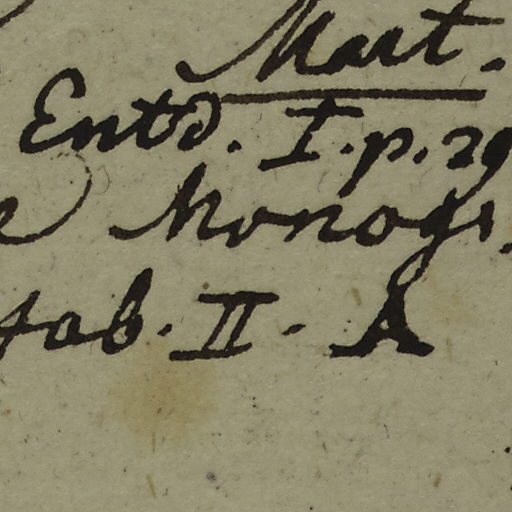 Mart.
Entd. I. p. 29
Monogr.
tab. II. A